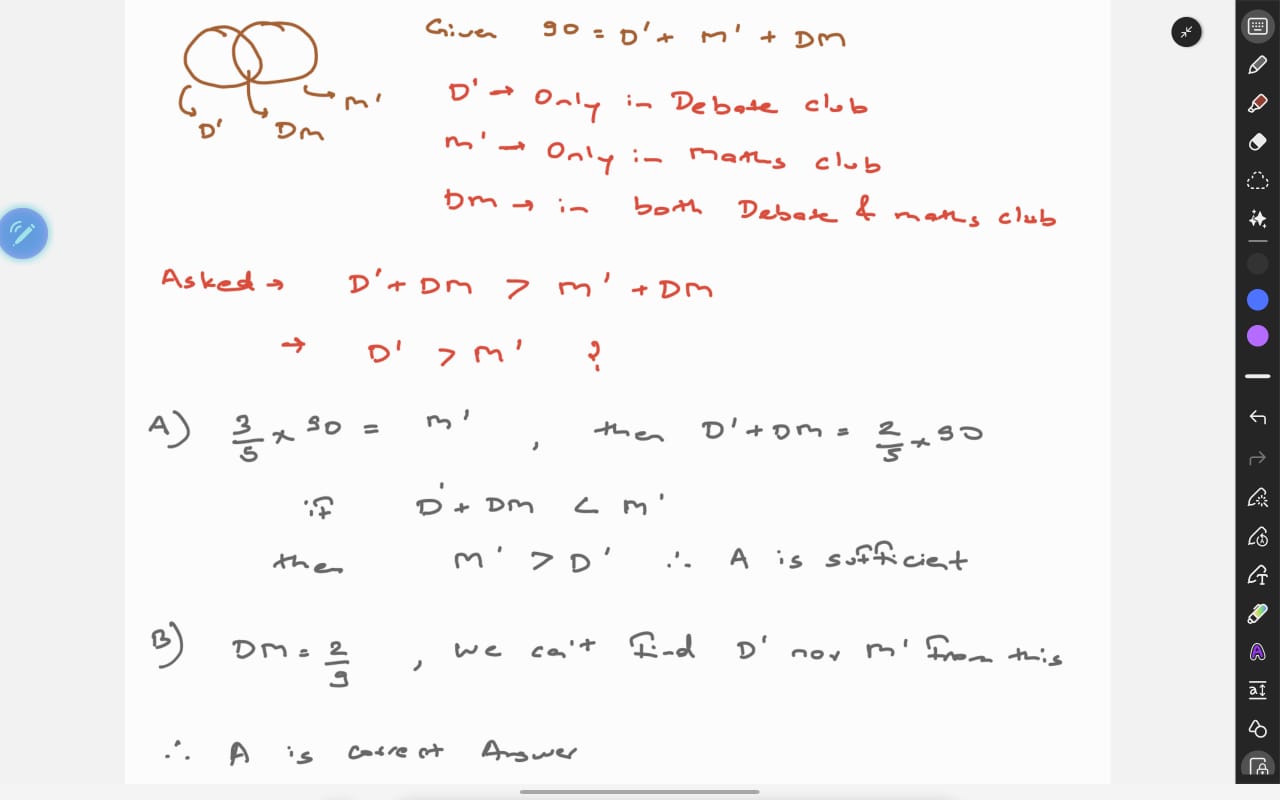 Given 90 = D' + m' + Dm
D' → Only in Debate club
m' → Only in maths club
Dm → in both Debate & maths club
D' Dm m'
Asked → D' + Dm > m' + Dm
→ D' > m' ?
A) 3/5 × 90 = m' , then D' + Dm = 2/5 × 90
if D' + Dm < m'
then m' > D' ∴ A is sufficient
B) Dm = 2/9 , we can't find D' nor m' from this
∴ A is correct Answer